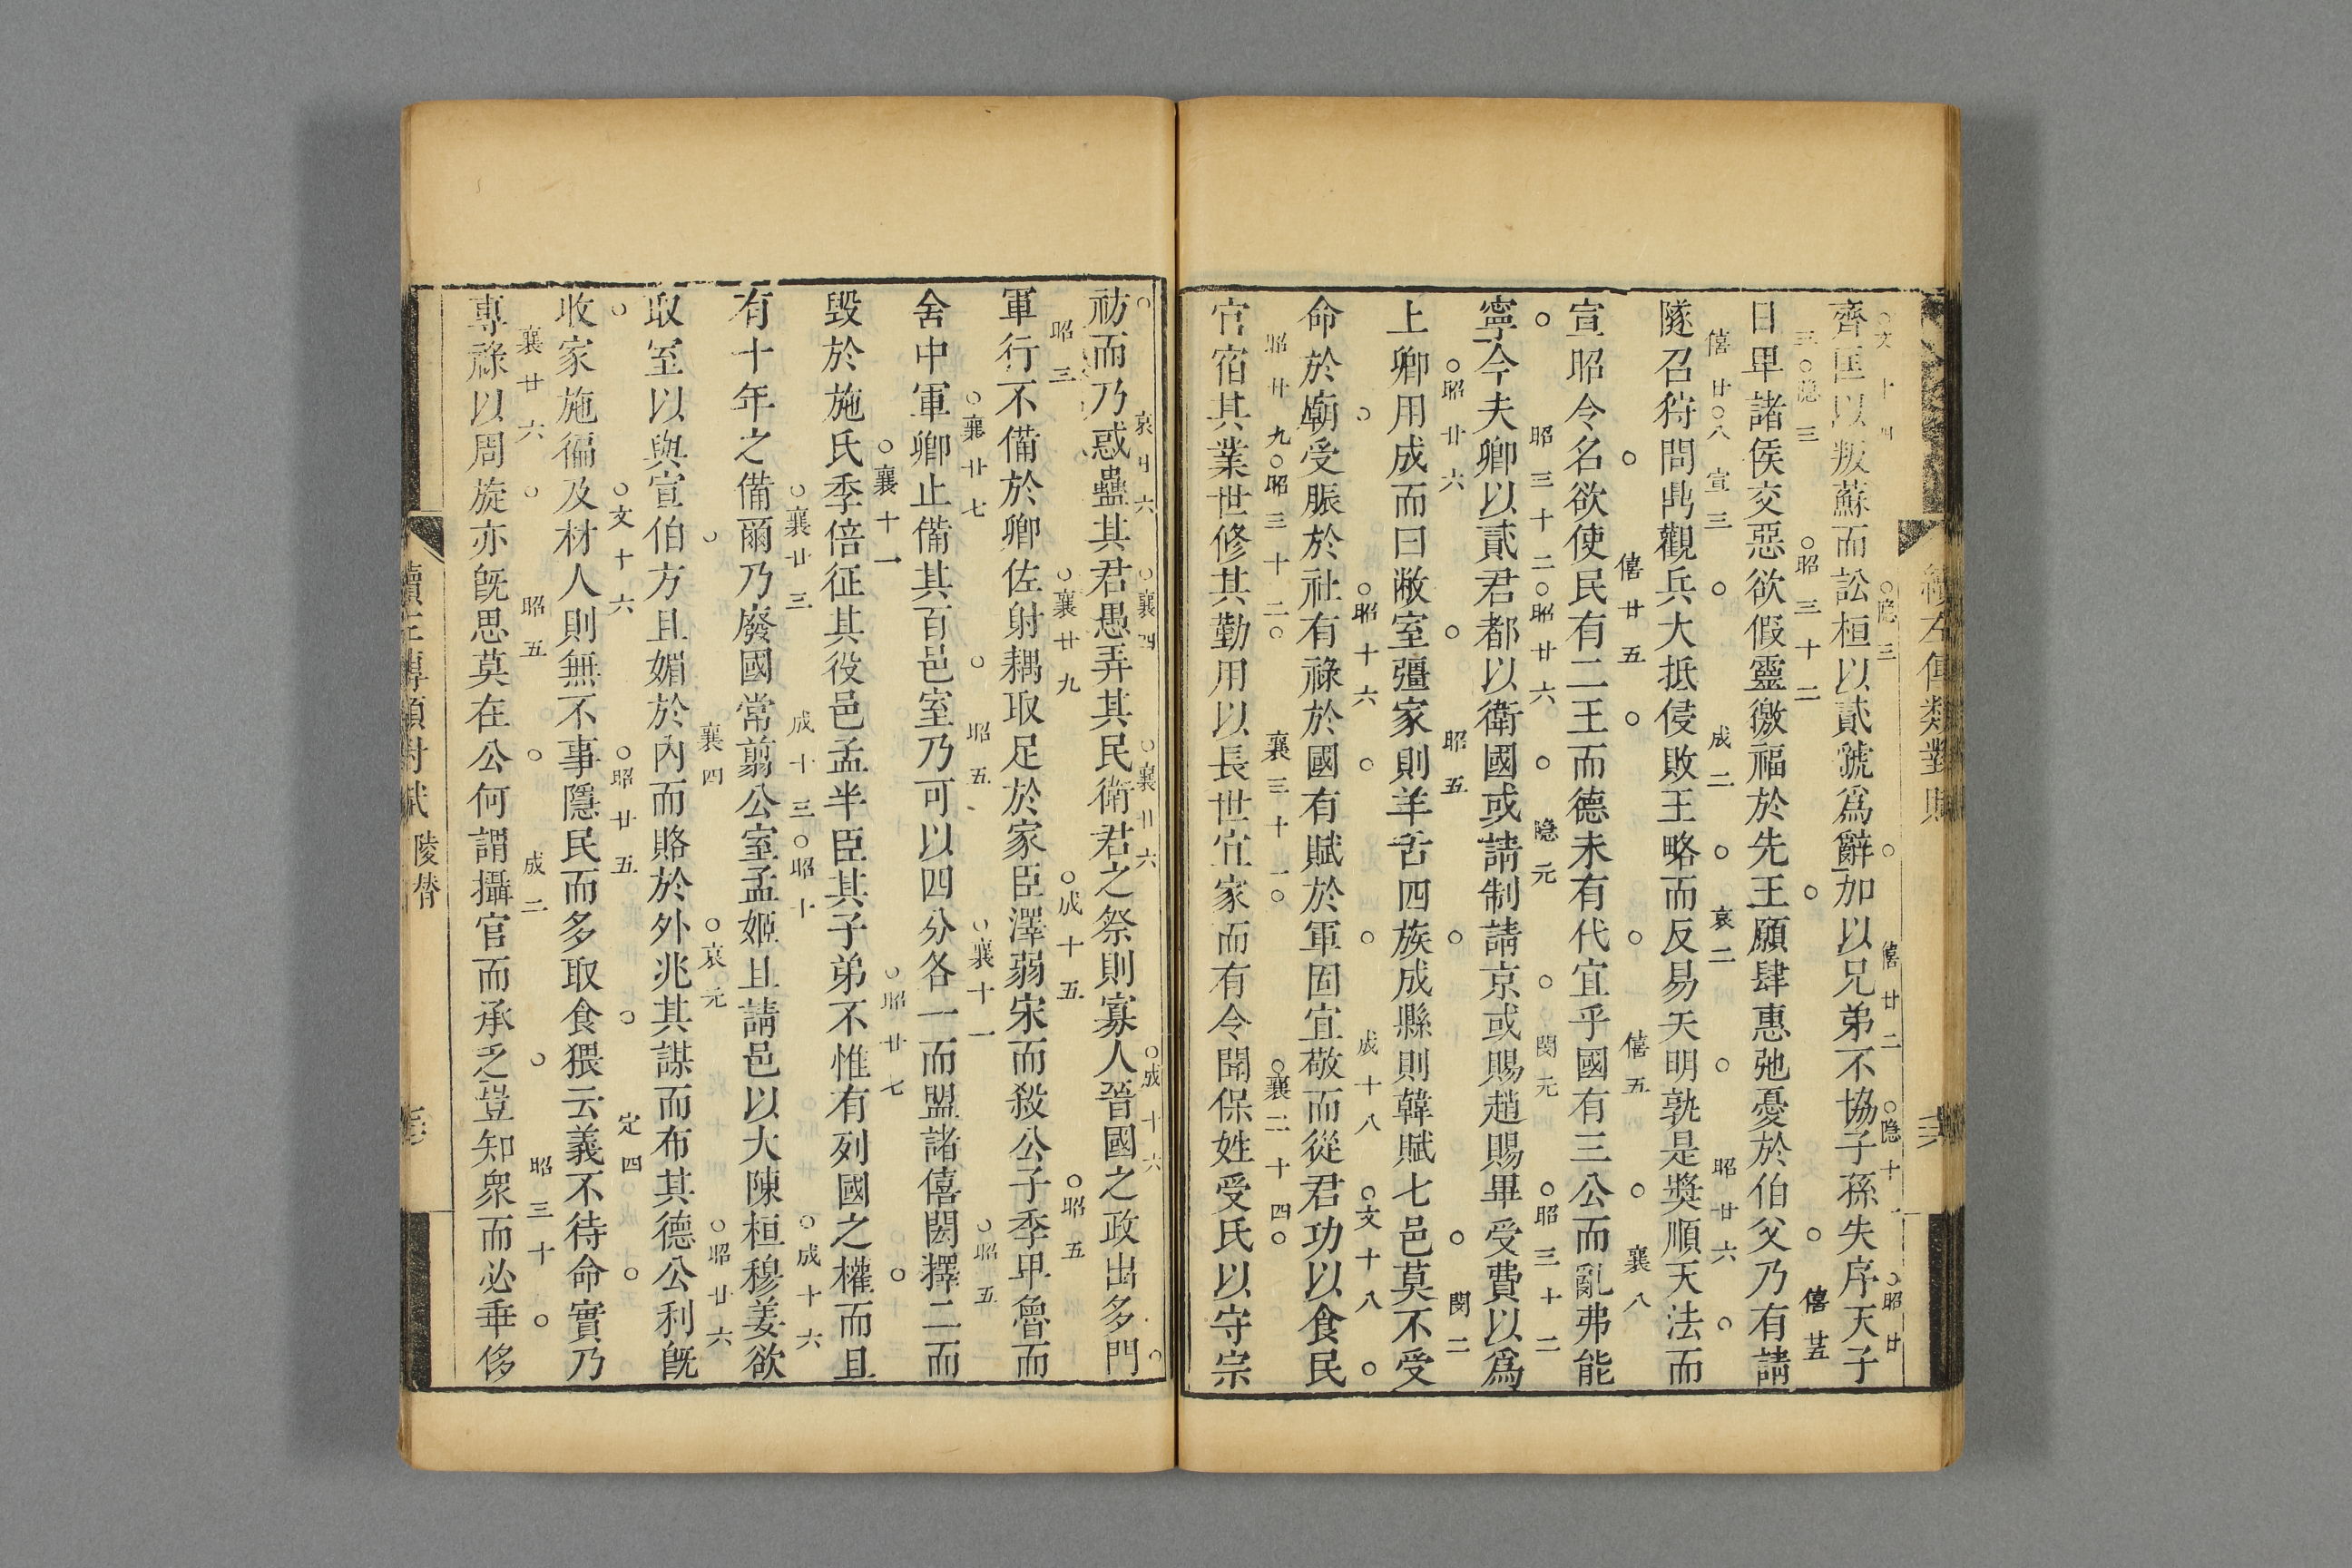 齊匡以叛蘇而訟桓以貳虢爲辭加以兄弟不協子孫失序天子
曰卑諸侯交惡欲假靈徼福於先王願肆惠弛憂於伯父乃有請
隧召狩問鼎觀兵大抵侵敗王略而反易天明孰是奬順天法而
宣昭令名欲使民有二王而德未有代宜乎國有三公而亂弗能
寧今夫卿以貳君都以衛國或請制請京或賜趙賜畢受費以爲
上卿用成而曰敝室彊家則羊舌四族成縣則韓賦七邑莫不受
命於廟受脤於社有祿於國有賦於軍固宜敬而從君功以食民
官宿其業世修其勤用以長世宜家而有令聞保姓受氏以守宗
祊而乃惑蠱其君愚弄其民衛君之祭則寡人晉國之政出多門
軍行不備於卿佐射耦取足於家臣澤弱宋而殺公子季卑魯而
舍中軍卿止備其百邑室乃可以四分各一而盟諸僖閎擇二而
毀於施氏季倍征其役邑孟半臣其子弟不惟有列國之權而且
有十年之備爾乃廢國常翦公室孟姬且請邑以大陳桓穆姜欲
取室以與宣伯方且媚於內而賂於外兆其謀而布其德公利旣
收家施徧及材人則無不事隱民而多取食猥云義不待命實乃
專祿以周旋亦旣思莫在公何謂攝官而承乏豈知衆而必乖侈
陵替